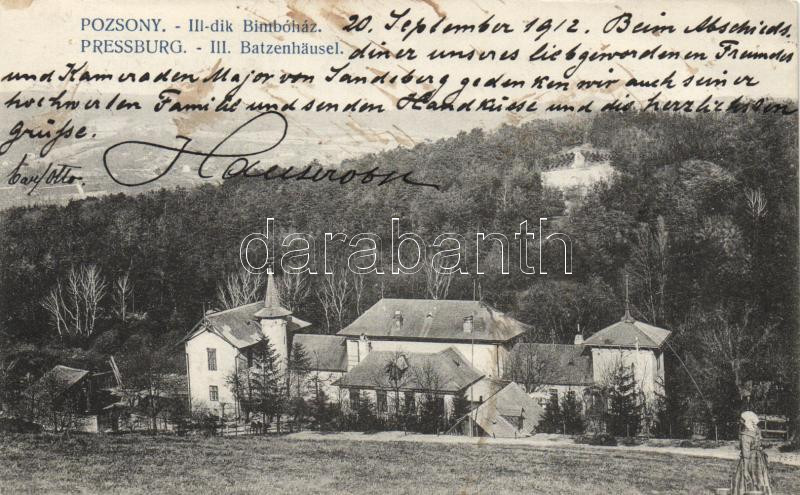 POZSONY. - III-dik Bimbóház.
PRESSBURG. - III. Batzenhäusel.
20. September 1912. Beim Abschieds-
diner unseres liebgewordenen Freundes
und Kameraden Major von Sandeberg gedenken wir auch seiner
hochwerten Familie und senden Handküsse und die herzlichsten
Grüsse.
Carl Otto.
darabanth